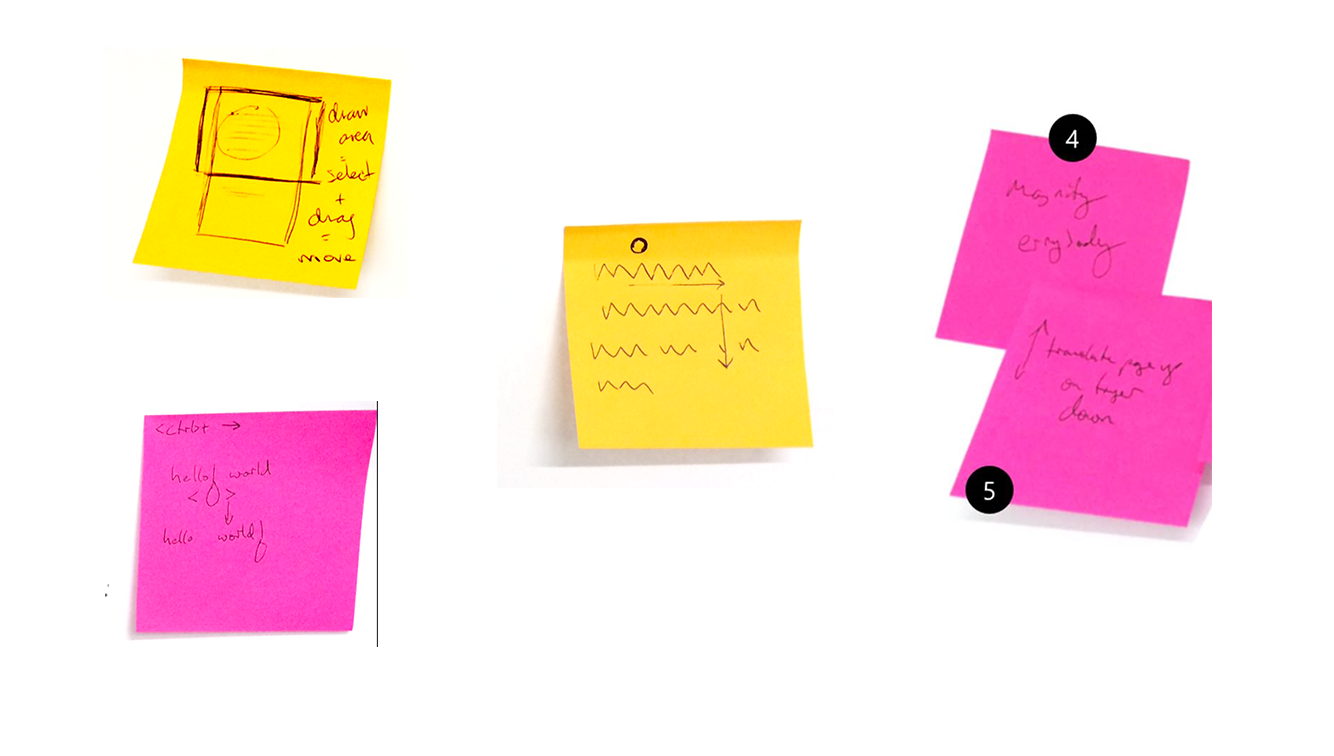 draw
area
=
select
+
drag
=
move
hello world
< >
hello world
4
Majority
everybody
translate page up
on finger
down
5